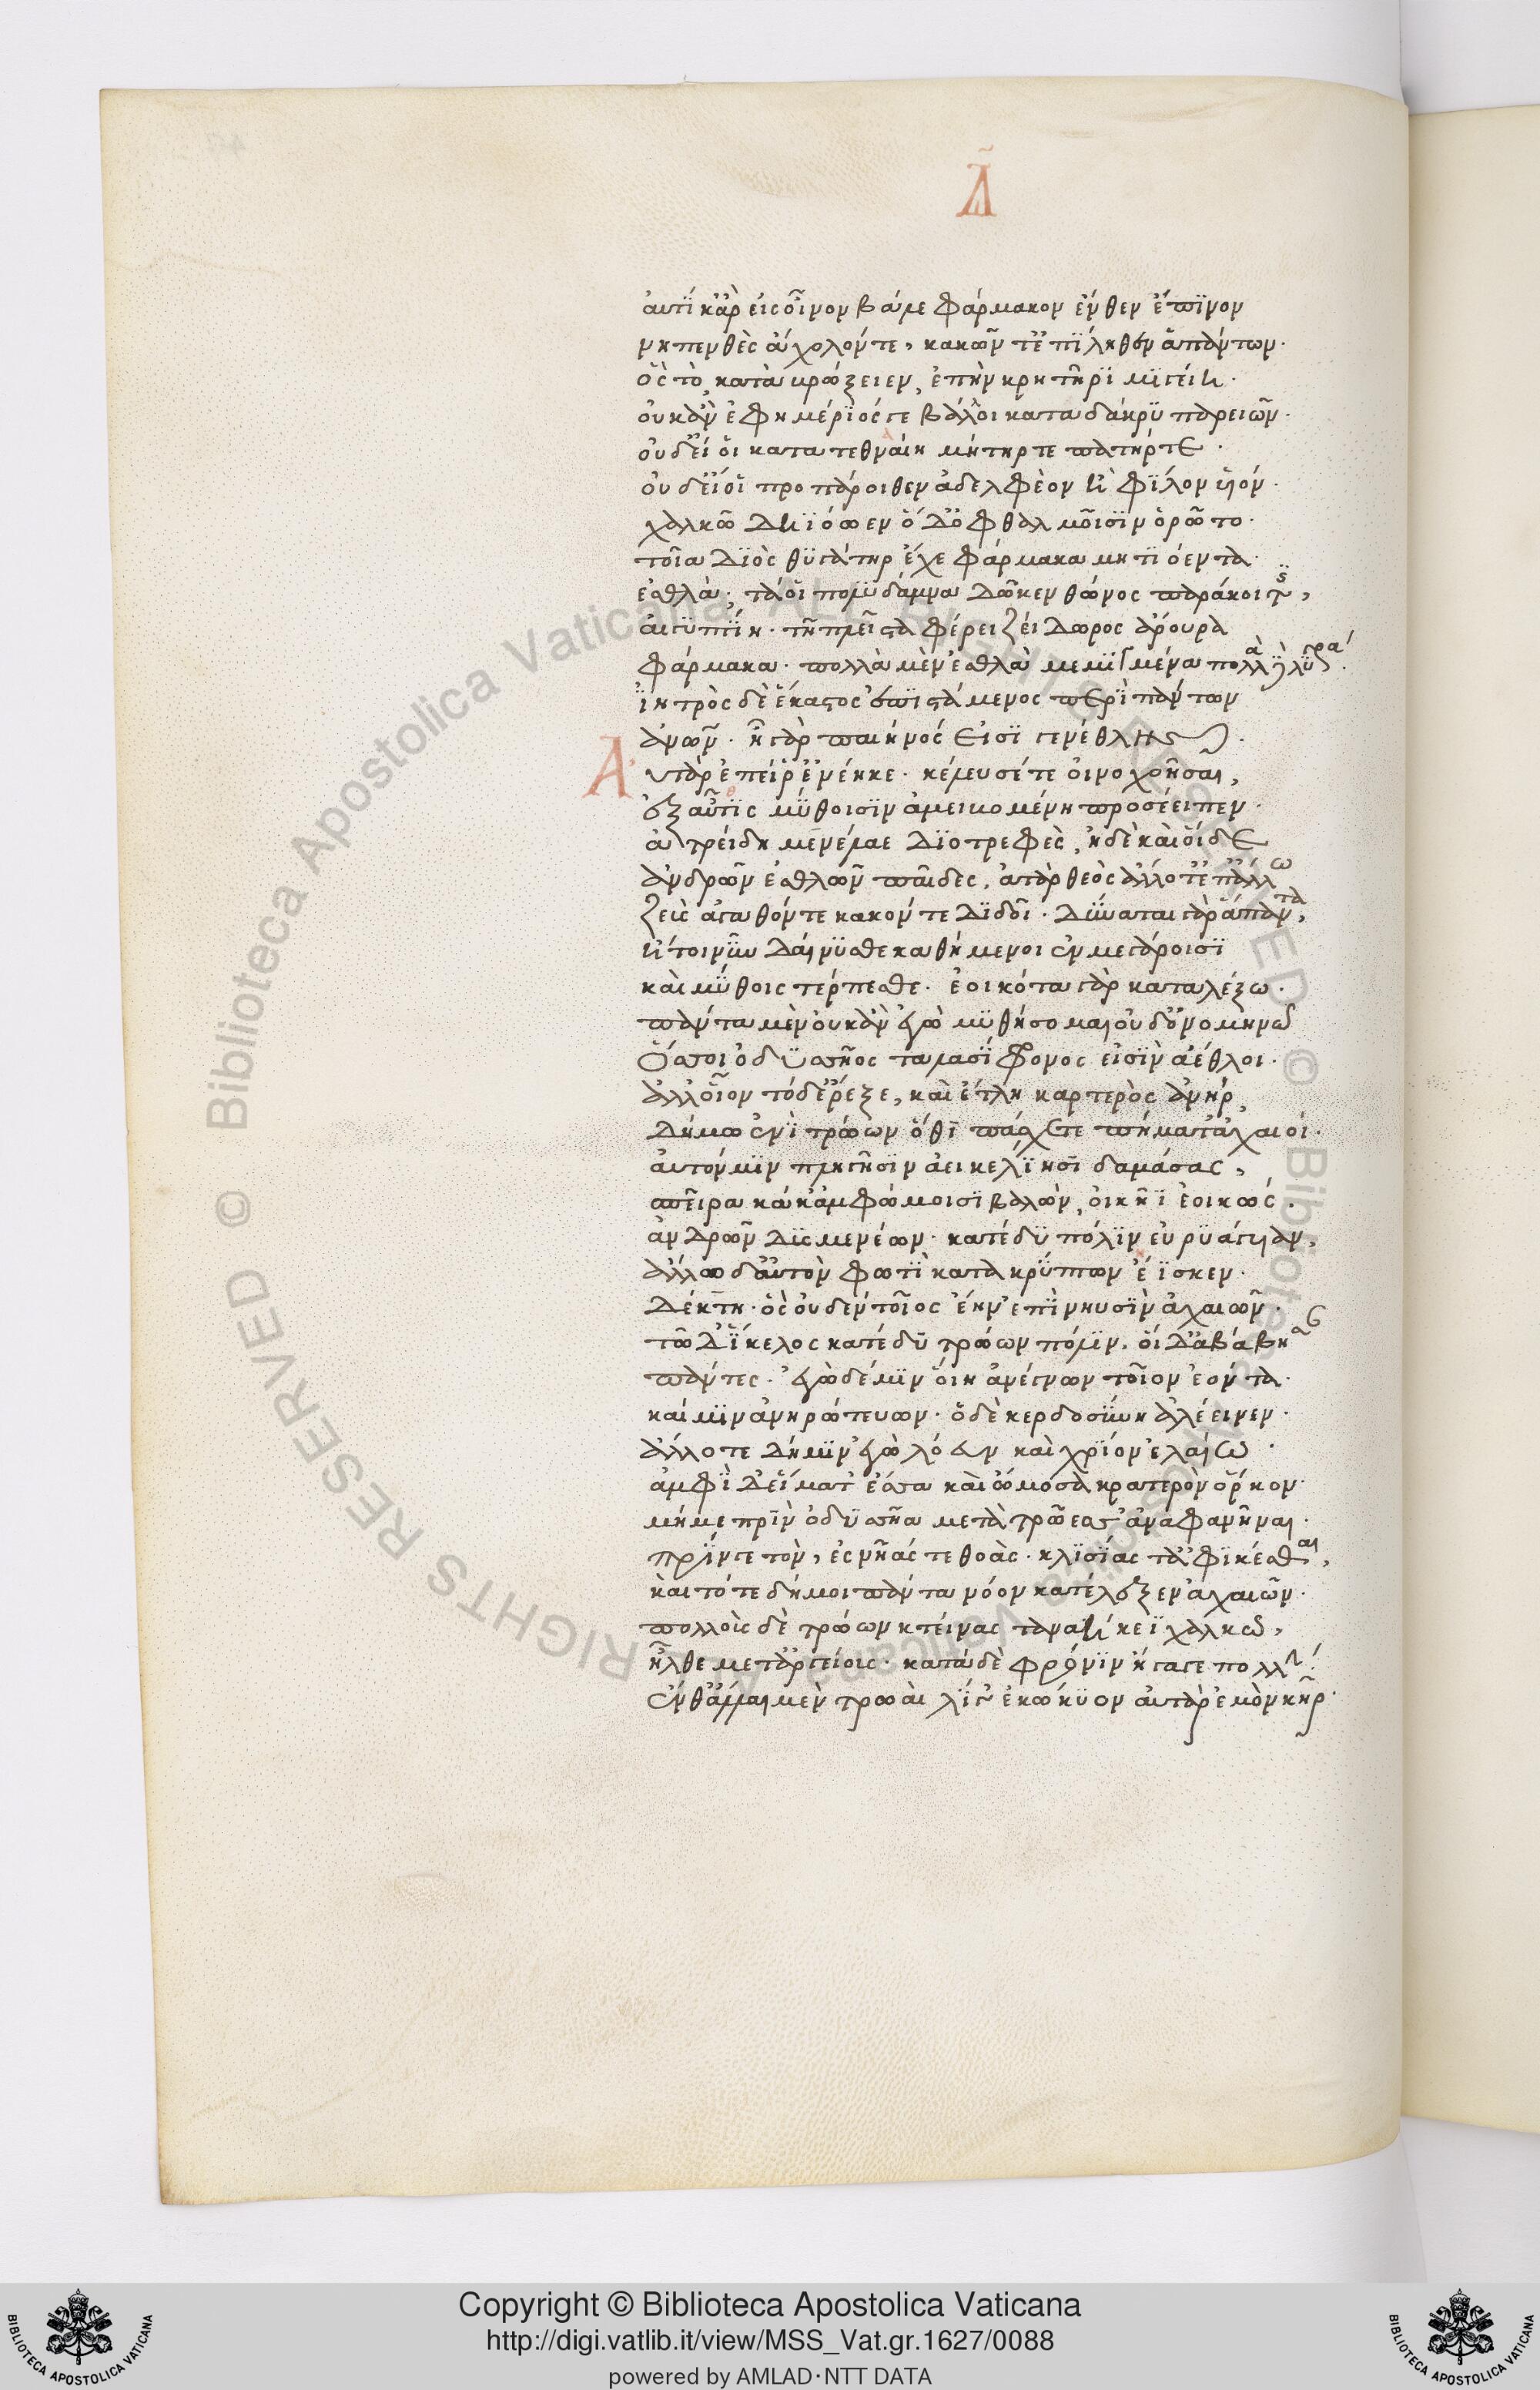 Δ̃
ἀυτίκ' ἂρ εἰς οἶνον βάλε φάρμακον ἔνθεν ἔπϊνον
νηπενθὲς ἄχολόντε, κακῶν τ' ἐπϊληθον ἁπάντων·
ὃς τὸ, καταβρώξειεν, ἐπὴν κρητῆρϊ μϊγείη·
οὐκ ἂν ἐφημέρϊός γε βάλλοι κατα δάκρϋ παρειῶν·
οὐδ' εἴ ὁι κατατεθναίη μήτηρ τε πατήρτε·
οὐδ' εἴ ὁι προπάροιθεν ἀδελφεὸν ἢ φϊλον ὑιόν·
χαλκῶ δηϊόωεν ὁ δ' ὀφθαλμοῖσϊν ὁρῶτο·
τοῖα Δϊὸς θϋγάτηρ ἔχε φάρμακα μητϊόεντα·
ἐσθλὰ· τά ὁι πολϋδάμνα δῶκεν θώνος παράκοιτϊς,
ἀιγϋπτϊη· τῆ πλεῖστα φέρει ζείδωρος ἄρουρα
φάρμακα· πολλὰ μὲν ἐσθλὰ μεμϊγμένα πολλὰ δὲ λϋγρά·
ϊητρὸς δὲ ἕκαστος ἐπϊστάμενος περὶ πάντων
ἀνθρώπων· ἦ γὰρ παιήονός εἰσϊ γενέθλης·
Αὐτὰρ ἐπεί ῥ' ἐνέηκε· κέλευσέ τε ὀινοχοῆσαι,
ἐξαῦτϊς μϋθοισϊν ἀμειβομένη προσέειπεν·
ἀτρείδη μενέλαε Δϊοτρεφὲς, ἠδὲ καὶ ὅιδε
ἀνδρῶν ἐσθλῶν παῖδες, ἀτὰρ θεὸς ἄλλοτε ἄλλω
ζεὺς ἀγαθόντε κακόντε Δϊδοῖ· Δϋναται γὰρ ἅπαντα,
ἤτοι νῦν Δαίνϋσθε καθήμενοι ἐν μεγάροισϊ
καὶ μϋθοις τέρπεσθε· ἐοικότα γὰρ καταλέξω·
πάντα μὲν οὐκ ἂν ἐγὼ μϋθήσομαι οὐδ' ὀνομήνω
ὅσσοι ὀδϋσσῆος ταλασϊφρονος εἰσϊν ἀέθλοι·
ἀλλ' οἷον τόδ' ἔρεξε, καὶ ἔτλη καρτερὸς ἀνήρ,
Δήμω ἐνὶ τρώων ὅθϊ πάσχετε πήματ' ἀχαιοί·
ἀυτόν μϊν πληγῆσϊν ἀεικελϊησϊ δαμάσας,
σπεῖρα κάκ' ἀμφ' ὤμοισϊ βαλὼν, οἰκῆϊ ἐοικώς·
ἀνδρῶν Δϋσμενέων· κατέδϋ πόλϊν εὐρϋάγυιαν,
ἄλλω δ' ἀυτὸν φωτὶ κατακρϋπτων ἔϊσκεν·
Δέκτη· ὃς οὐδὲν τοῖος ἔην ἐπὶ νηυσϊν ἀχαιῶν·
τῶ Δ' ἴκελος κατέδϋ τρώων πόλϊν, ὁι Δ' ἀβάκησαν
πάντες· ἐγὼ δέ μϊν ὄιη ἀνέγνων τοῖον ἐόντα·
καί μϊν ἀνηρώτευων· ὁ δὲ κερδοσϋνη ἀλέεινεν·
ἀλλ' ὅτε Δή μϊν ἐγὼ λόευν καὶ χρῖον ἐλαίω·
ἀμφὶ Δὲ εἵματ' ἕσσα καὶ ὤμοσα κρατερὸν ὅρκον·
μή με πρὶν ὀδϋσσῆα μετὰ τρώεσσ' ἀναφανῆναι·
πρϊν γε τὸν, ἐς νῆάς τε θοὰς· κλϊσϊας τ' ἀφϊκέσθαι,
καὶ τότε δή μοι πάντα νόον κατέλεξεν ἀχαιῶν·
πολλοὺς δὲ τρώων κτείνας ταναήκεϊ χαλκῶ,
ἦλθε μετ' ἀργείους· κατὰ δὲ φρόνϊν ἤγαγε πολλήν·
ἔνθ' ἄλλαι μὲν τρωαὶ λίγ' ἐκώκϋον ἀυτὰρ ἐμὸν κῆρ·
Copyright © Biblioteca Apostolica Vaticana
http://digi.vatlib.it/view/MSS_Vat.gr.1627/0088
powered by AMLAD·NTT DATA